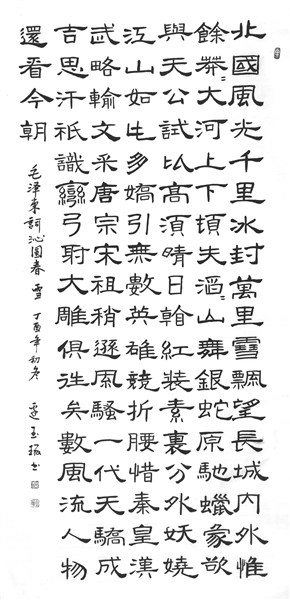 北國風光千里冰封萬里雪飄望長城內外惟
餘莽〻大河上下頓失滔〻山舞銀蛇原馳蠟象欲
與天公試比高須晴日看紅裝素裹分外妖嬈
江山如此多嬌引無數英雄競折腰惜秦皇漢
武略輸文采唐宗宋祖稍遜風騷一代天驕成
吉思汗祇識彎弓射大雕俱往矣數風流人物
還看今朝
毛澤東詞沁園春 雪 丁酉年初冬 玉